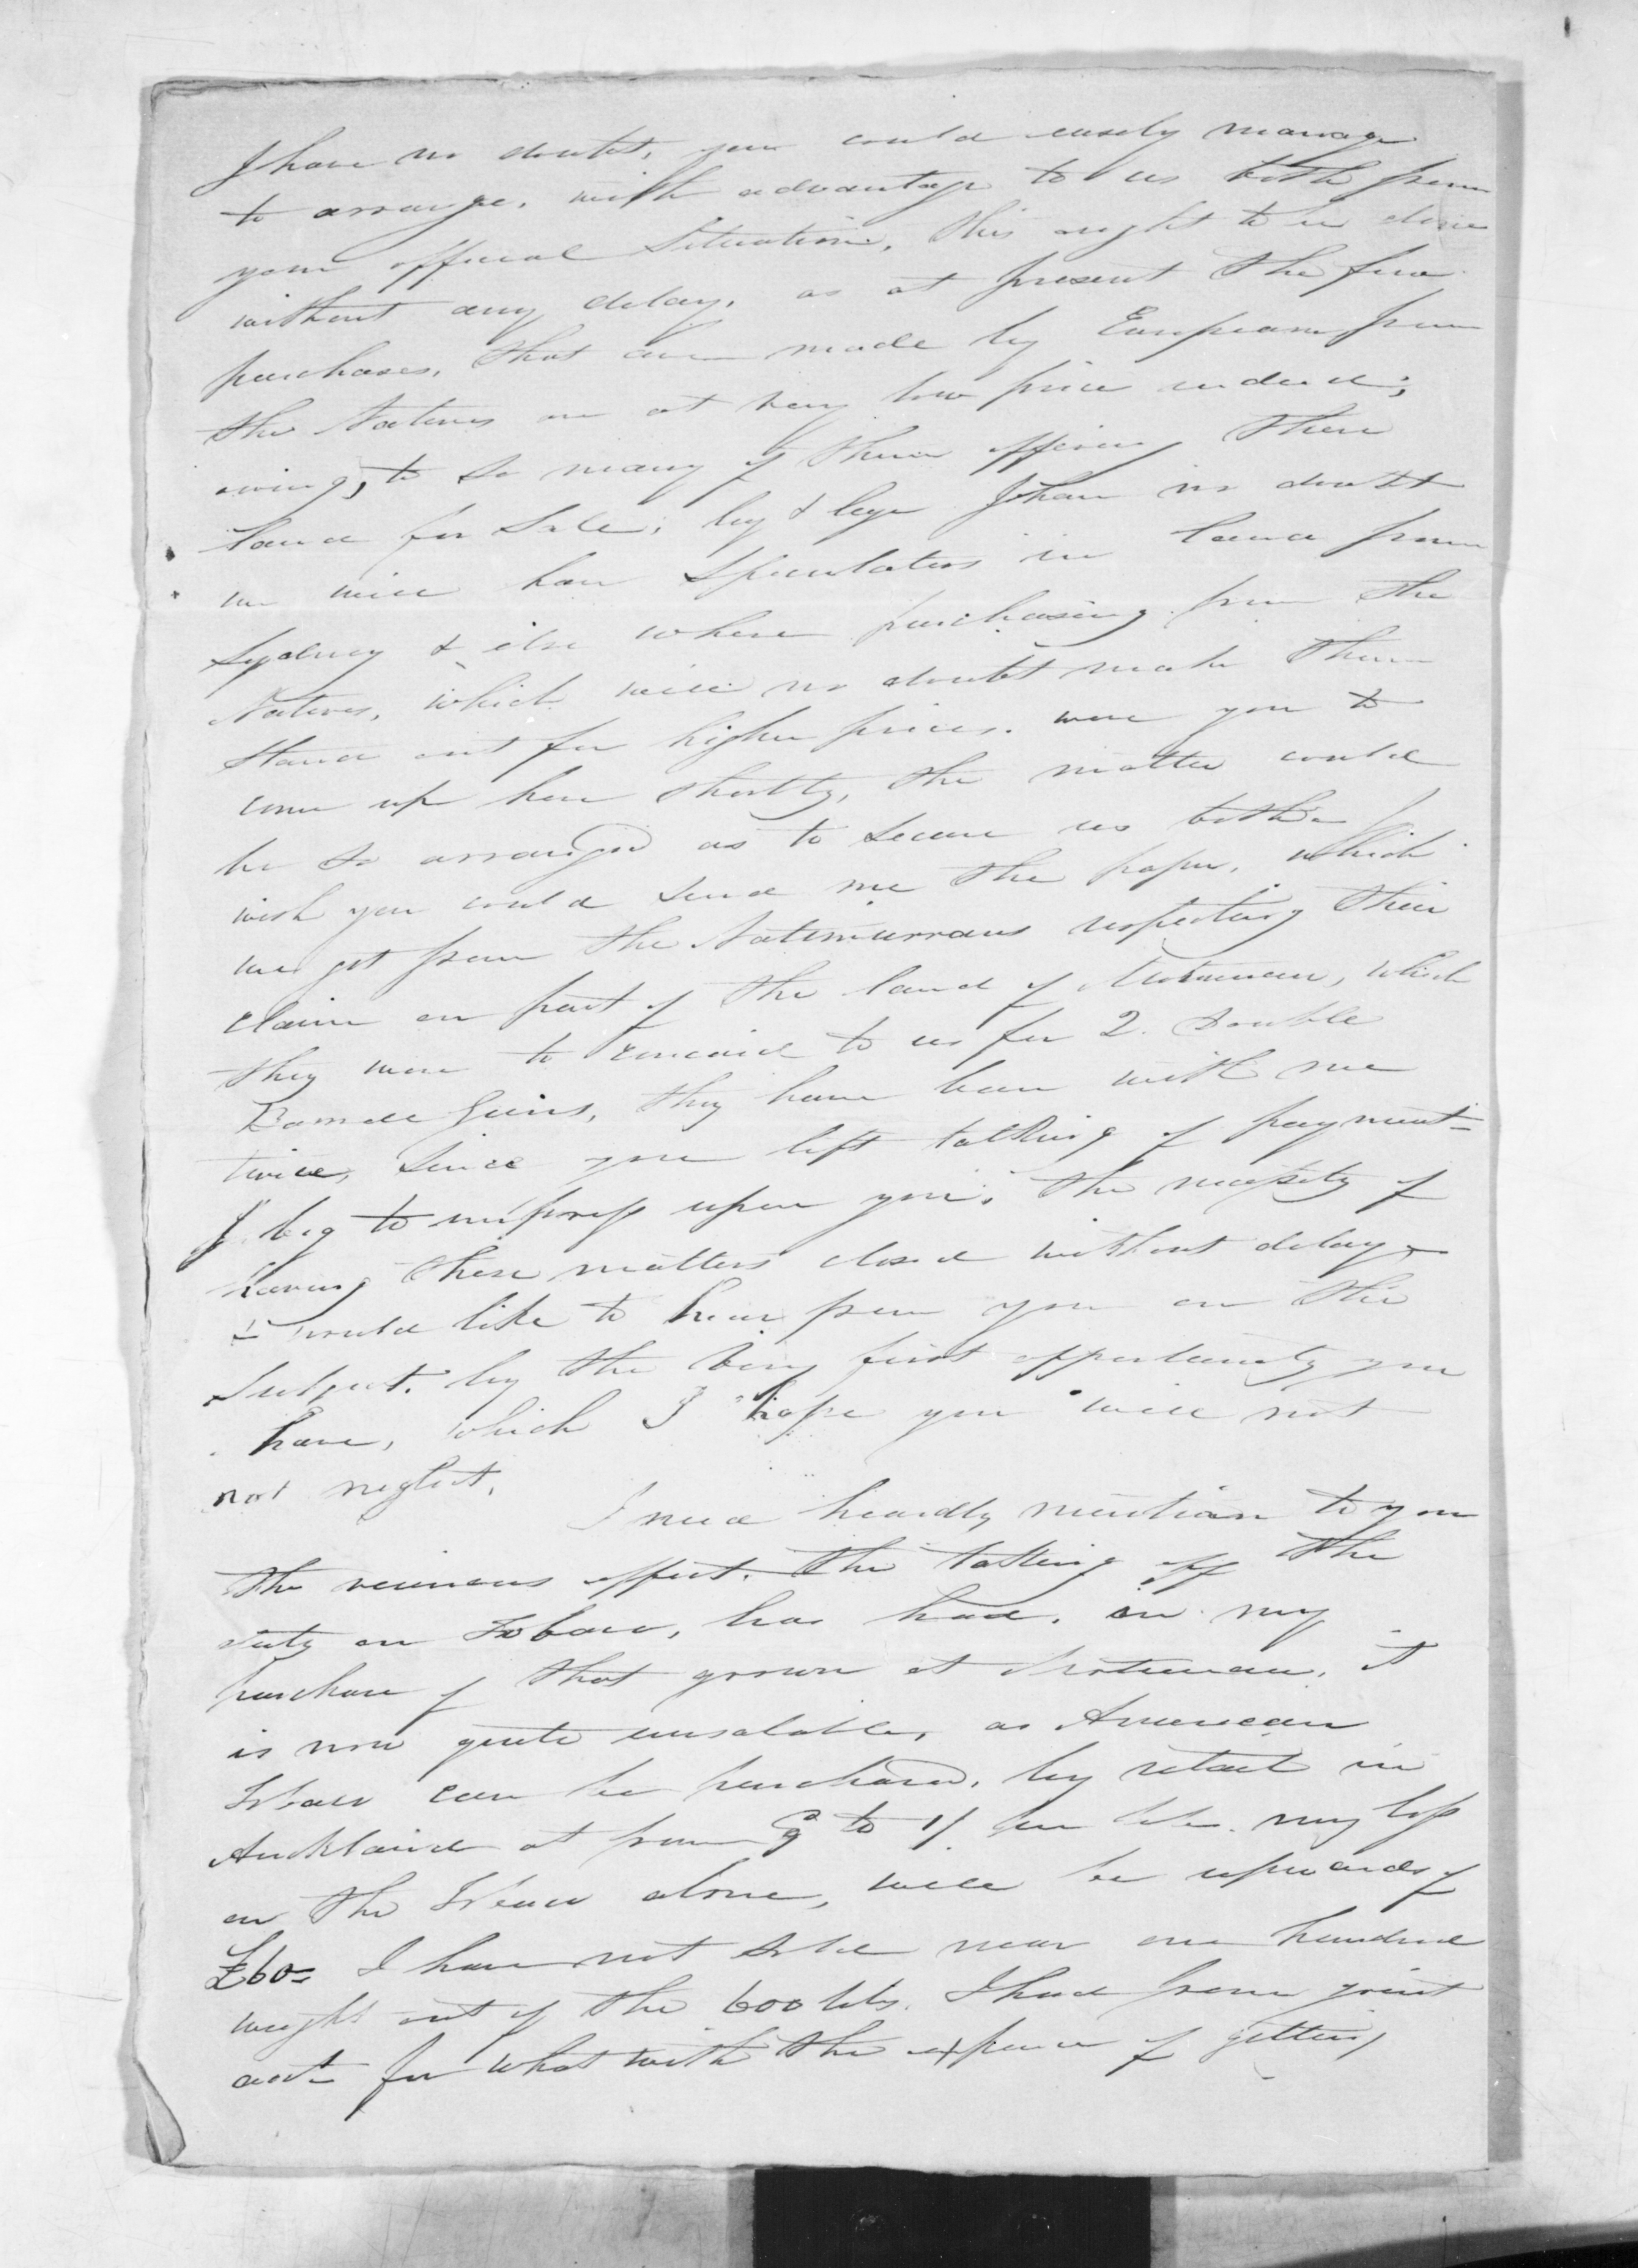 I have no doubt, you could easely manage
to arrange, with advantage to us both from
your official Situation, this ought to be done
without any delay, as at present the few
purchases, that are made by Europeans from
the Natives are at very low price indeed;
owing, to so many of them offering there
land for Sale, by & bye I have no doubt
we will have Speculators in land from
Sydney & else where purchasing from the
Natives, which will no doubt make them
stand out for higher prices. were you to
come up here shortly, the matter could
be so arranged as to secure us both I
wish you could send me the paper, which
we got from the respecting their
claim on part of the land of Motuman, which
they were to to us for 2. Double
Barrell Guns, they have been with me
twice, since you left talking of payment-
I beg to impress upon you, the necessity of
having these matters closed without delay
I would like to hear from you on the
subject. by the very first opportunity you
have, which I hope you will not
not neglect.
I need hardly mention to you
the ruinous effect, the taking off the
duty on Tobaco, has had, on my
purchase of that grown at Motuman, it
is now quite unsalable, as American
Tobaco can be purchased, by retail in
Auckland at from 9 to 1/ per lb. my loss
on the Tobaco alone, will be upwards of
£60= I have not sold near one hundred
weight out of the 600 lbs. I had from joint
act for what with the expence of getting